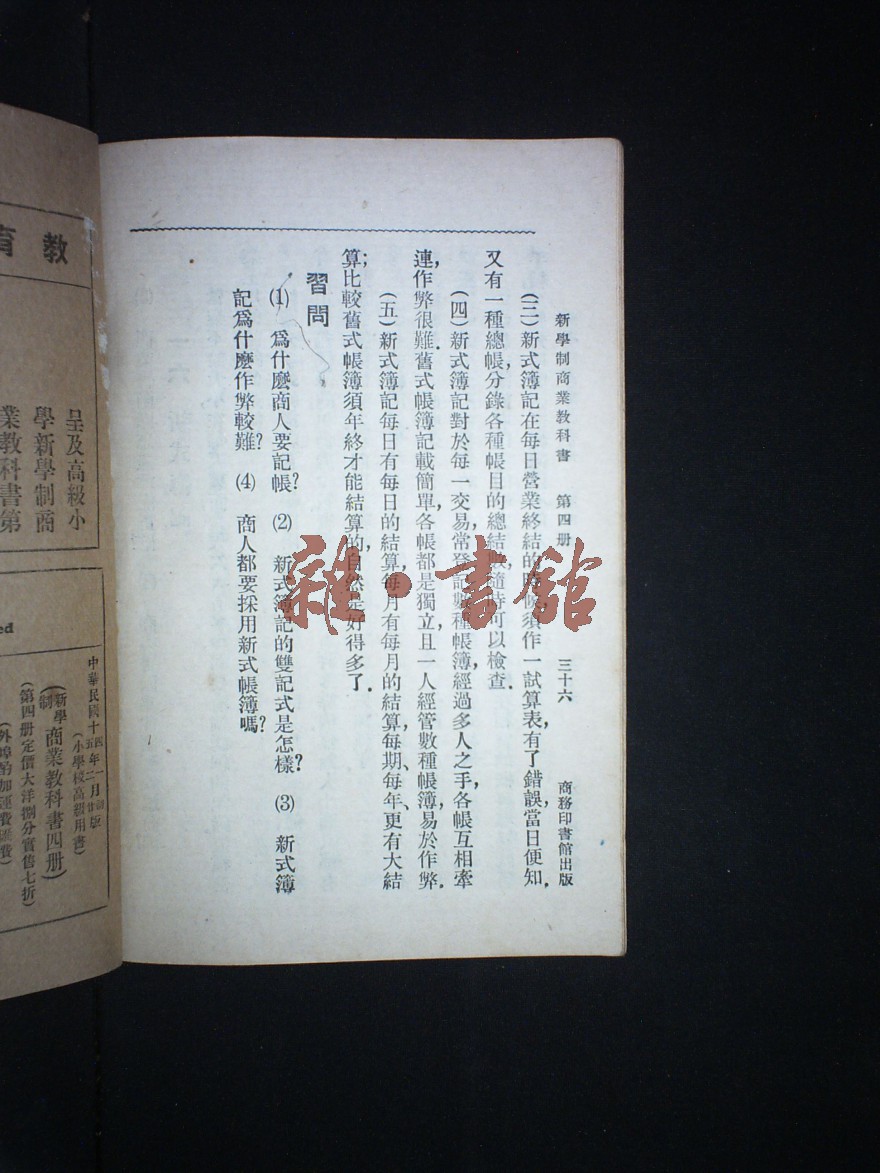 新學制商業教科書 第四册 三十六 商務印書館出版
(三)新式簿記在每日營業終結的時候,須作一試算表,有了錯誤,當日便知.
又有一種總帳,分錄各種帳目的總結帳,隨時可以檢查.
(四)新式簿記對於每一交易,常登記數種帳簿,經過多人之手,各帳互相牽
連,作弊很難.舊式帳簿記載簡單,各帳都是獨立,且一人經管數種帳簿,易於作弊.
(五)新式簿記每日有每日的結算,每月有每月的結算,每期、每年、更有大結
算;比較舊式帳簿須年終才能結算的,自然是好得多了.
習問
(1) 爲什麽商人要記帳? (2) 新式簿記的雙記式是怎樣? (3) 新式簿
記爲什麽作弊較難? (4) 商人都要採用新式帳簿嗎?
雜·書館
教育
呈及高級小
學新學制商
業教科書第
ed
中華民國十四年一月初版
五年二月
(小學校高級用書)
(新學制商業教科書四册)
(第四册定價大洋捌分實售七折)
(外埠酌加運費匯費)